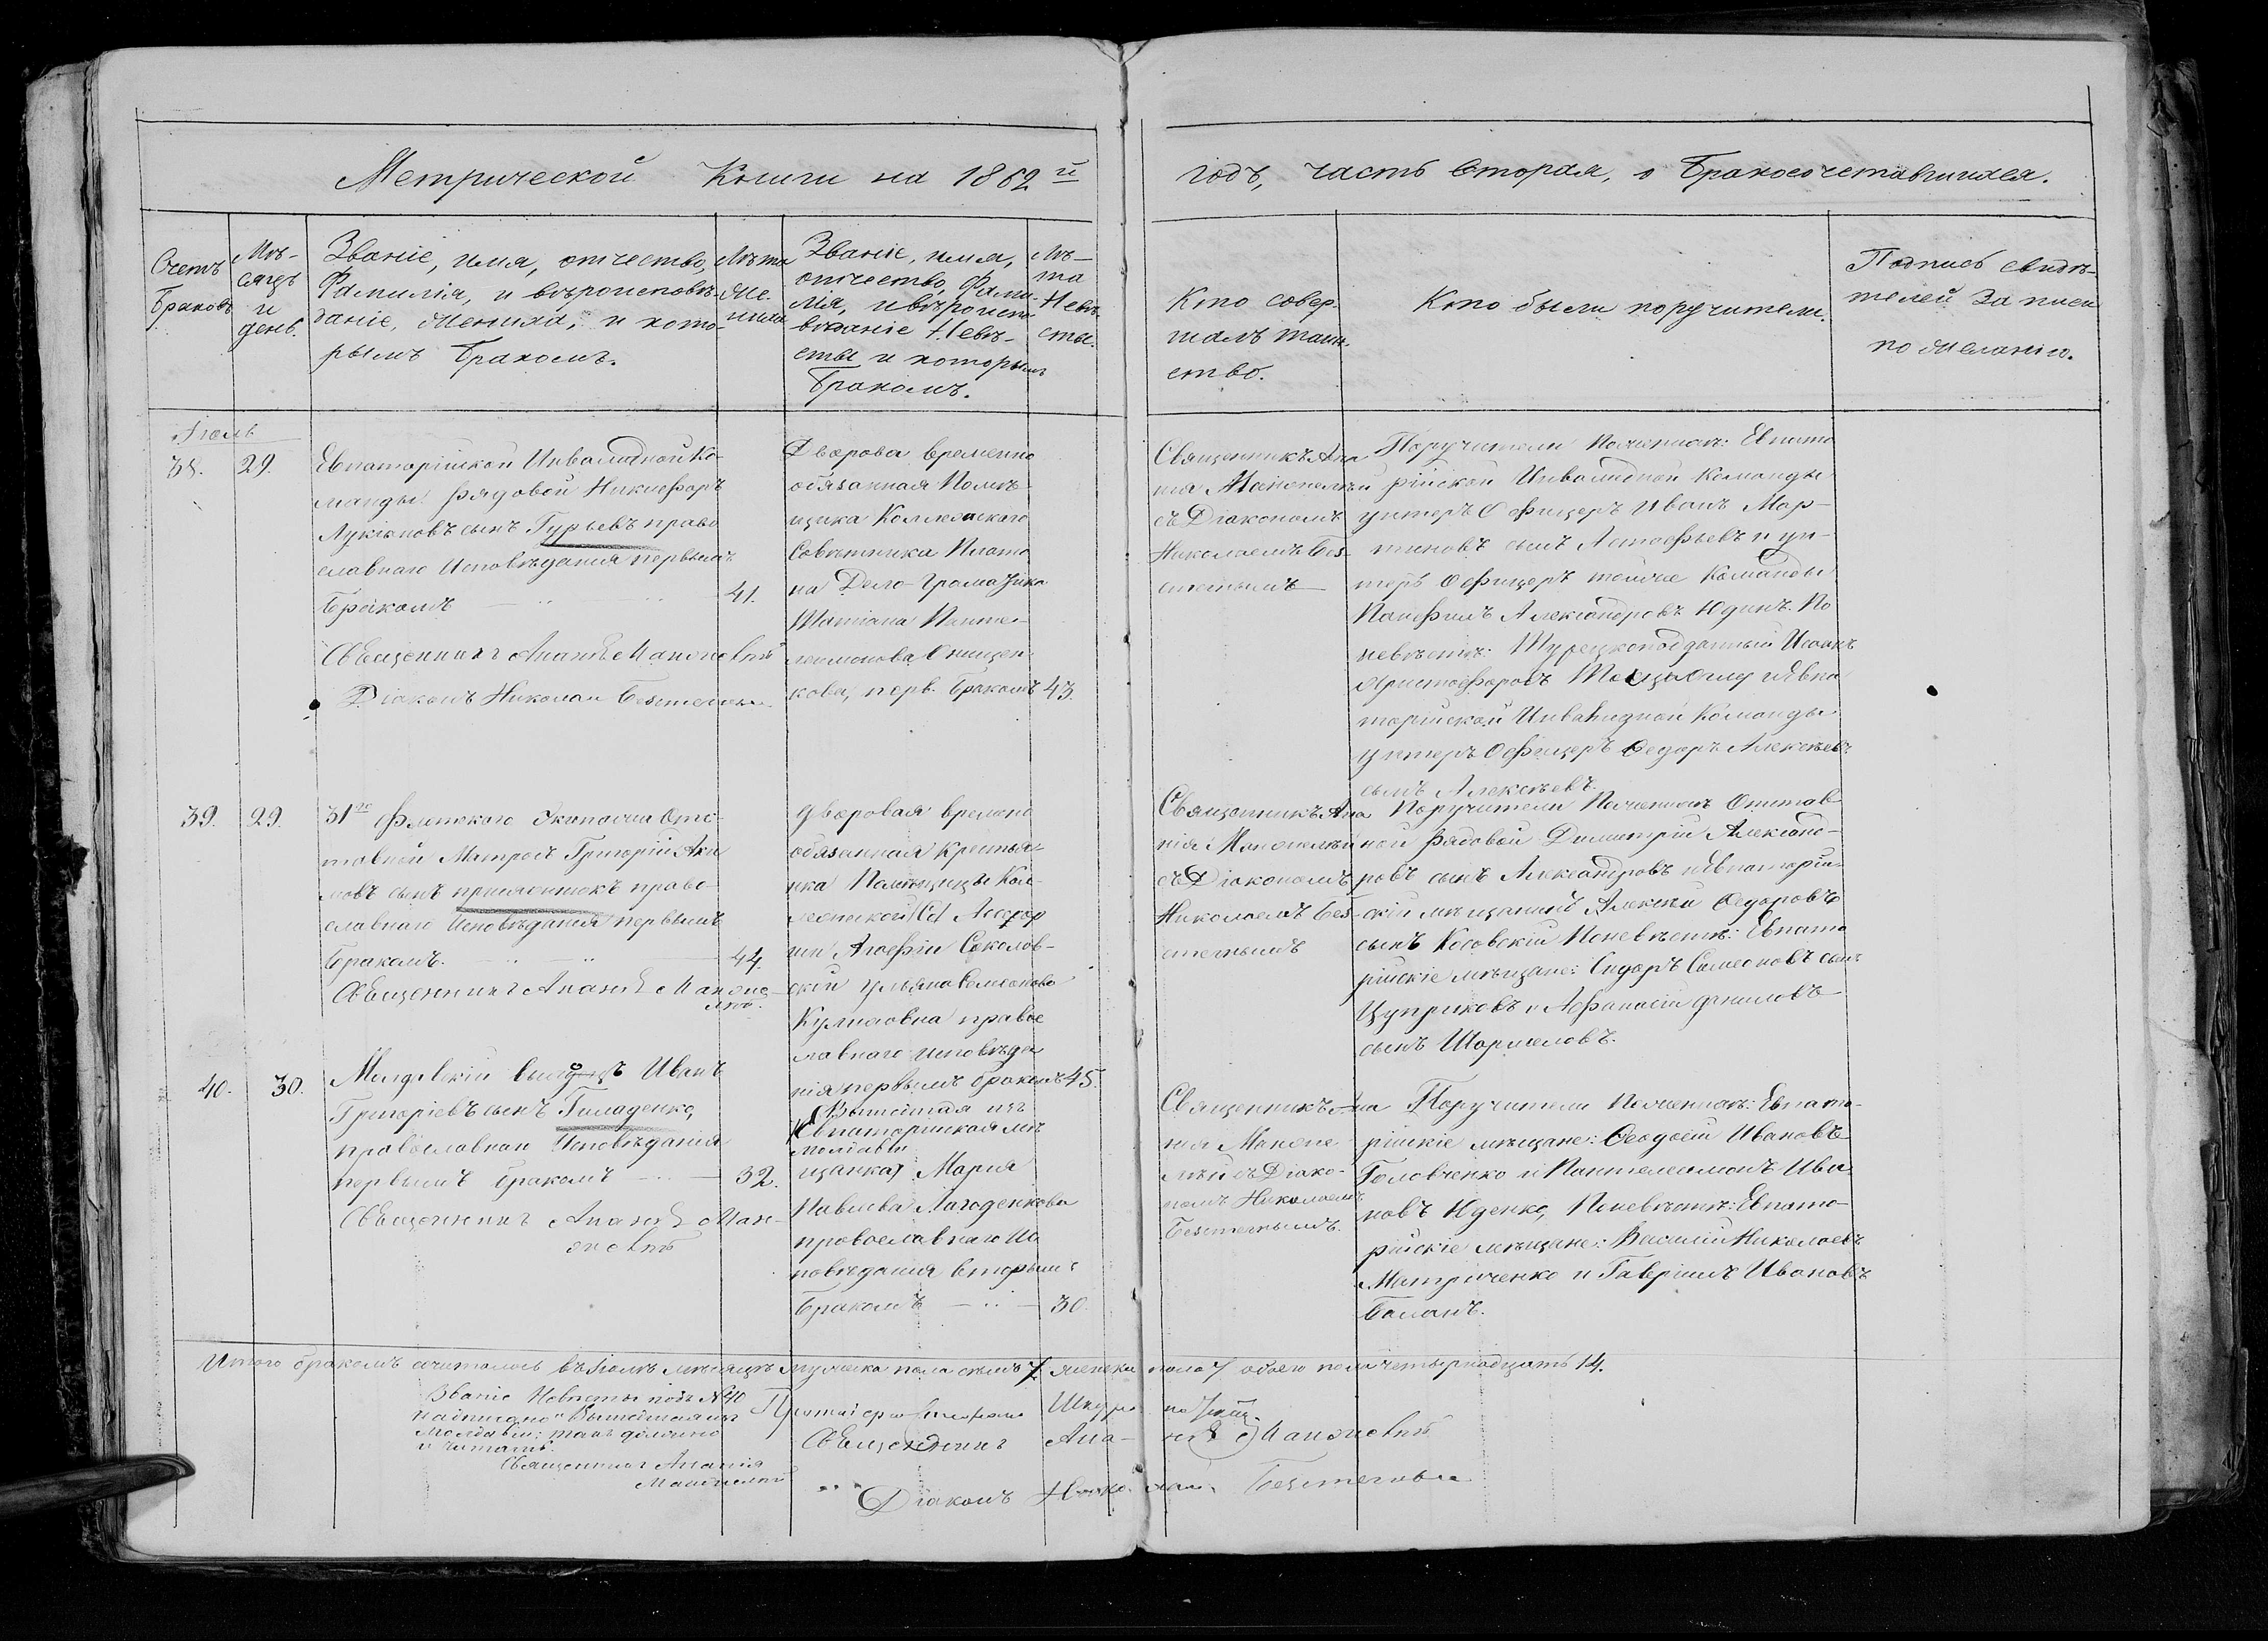 Метрической Книги на 1862й
годъ, часть вторая, о бракосочетавшихся.
Счетъ
браковъ
Мѣ-
сяцъ
и
день.
Званіе, имя, отчество,
Фамилія, и вѣроисповѣ-
даніе, жениха, и кото-
рымъ бракомъ.
Лѣта
же-
ниха
Званіе, имя,
отчество, фами-
лія, и вѣроиспо
вѣданіе Невѣ-
сты и которымъ
бракомъ.
Лѣ-
та
Невѣ
сты.
Кто совер-
шалъ таин-
ство.
Кто были поручители.
Подпись свидѣ-
телей записи
по желанію.
Іюль
38. 29.
Евпаторійской Инвалидной Ко-
манды рядовой Никифоръ
Лукіановъ сынъ Гурьевъ право
славнаго Исповѣданія первымъ
бракомъ 41.
Священникъ Ананія Манопелій
Діаконъ Николай
Дворова временно
обязанная Помѣ-
щика Коллежскаго
Совѣтника Плато
на Дело
Татіана Панте-
леимонова Онищен-
кова, перв. бракомъ 43.
Священникъ Ана
нія
съ Діакономъ
Николаемъ Без-
Поручители по женихѣ: Евпато
рійской Инвалидной Команды
унтеръ Офицеръ Иванъ Мар-
тиновъ сынъ Астафьевъ и ун-
теръ Офицеръ тойже Команды
Панфилъ Александровъ Юдинъ. По
невѣстѣ: Турецкоподданный Иоанъ
Христофоровъ и Евпа
торійской Инвалидной Команды
унтеръ Офицеръ Федоръ Алексѣевъ
сынъ Алексѣевъ.
39. 29.
31го Флотскаго Экипажа Отс-
тавной Матросъ Григорій Аки
мовъ сынъ право-
славнаго Исповѣданія первымъ
бракомъ. 44.
Священникъ Ананія Манопе
лій.
дворовая временно
обязанная крестья-
нка Помѣщицы Кол-
лежской Асессор
ши Агафіи Соколов-
ской Ульяна Семионова
Куликовна правос
лавнаго исповѣда
нія первымъ бракомъ 45.
Священникъ Ана
нія
съ Діакономъ
Николаемъ Без-
Поручители По женихѣ Отстав-
ной рядовой Димитрій Александ-
ровъ сынъ Александровъ и Евпаторій-
скій мѣщанинъ Алексѣй Федоровъ
сынъ Косовскій По невѣстѣ: Евпато
рійскіе мѣщане: Сидоръ Симеоновъ сынъ
Цуприковъ и Афанасій Даниловъ
сынъ
40. 30.
Молдавскій выходецъ Иванъ
Григоріевъ сынъ Гамаденко,
православнаго Исповѣданія
первымъ бракомъ 32.
Священникъ Ананія Ман-
опелій
Вышедшая изъ
Молдавіи
(Евпаторійская мѣ
щанка) Марія
Павлова Лагоденкова
православнаго Ис
повѣданія вторымъ
бракомъ 30.
Священникъ Ана
нія Манопе
лій съ Діако-
номъ Николаемъ
Поручители По женихѣ: Евпато-
рійскіе мѣщане: Феодосій Ивановъ
Головченко и Пантелеимонъ Ива
новъ Юденко, По невѣстѣ: Евпато-
рійскіе мѣщане: Василій Николаевъ
Митриченко и Гавріилъ Ивановъ
Баланъ.
Итого бракомъ сочиталось въ Іюлѣ мѣсяцѣ мужеска пола семь 7. женска пола 7 обоего пола четырнадцать 14.
Званіе Невѣсты подъ №40
надписано "Вышедшая изъ
Молдавіи: такъ должно
и читать.
Священникъ Ананія
Манопелій
Священникъ Ананія Манопелій
Діаконъ Николай